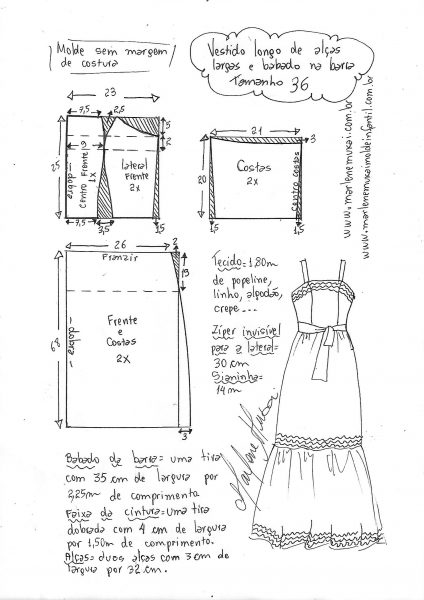 Molde sem margem
de costura
Vestido longo de alças
largas e babado na barra
Tamanho 36
www.marlenemukai.com.br
www.marlenemukaimoldeinfantil.com.br
23
7,5
2,5
5
2
25
dobra
Centro Frente
1x
lateral
Frente
2x
7,5
3,5
1,5
21
3
20
Costas
2x
Centro costas
1,5
1,5
26
2
Franzir
19
68
dobra
Frente
e
Costas
2x
3
Tecido=1,80m
de popeline,
linho, algodão,
crepe...
Zíper invisível
para a lateral=
30 cm
Sianinha=
14m
Marlene Mukai
Babado da barra= uma tira
com 35 cm de largura por
2,25m de comprimento
Faixa da cintura=uma tira
dobrada com 4 cm de largura
por 1,50m de comprimento.
Alças= duas alças com 3cm de
largura por 32 cm.